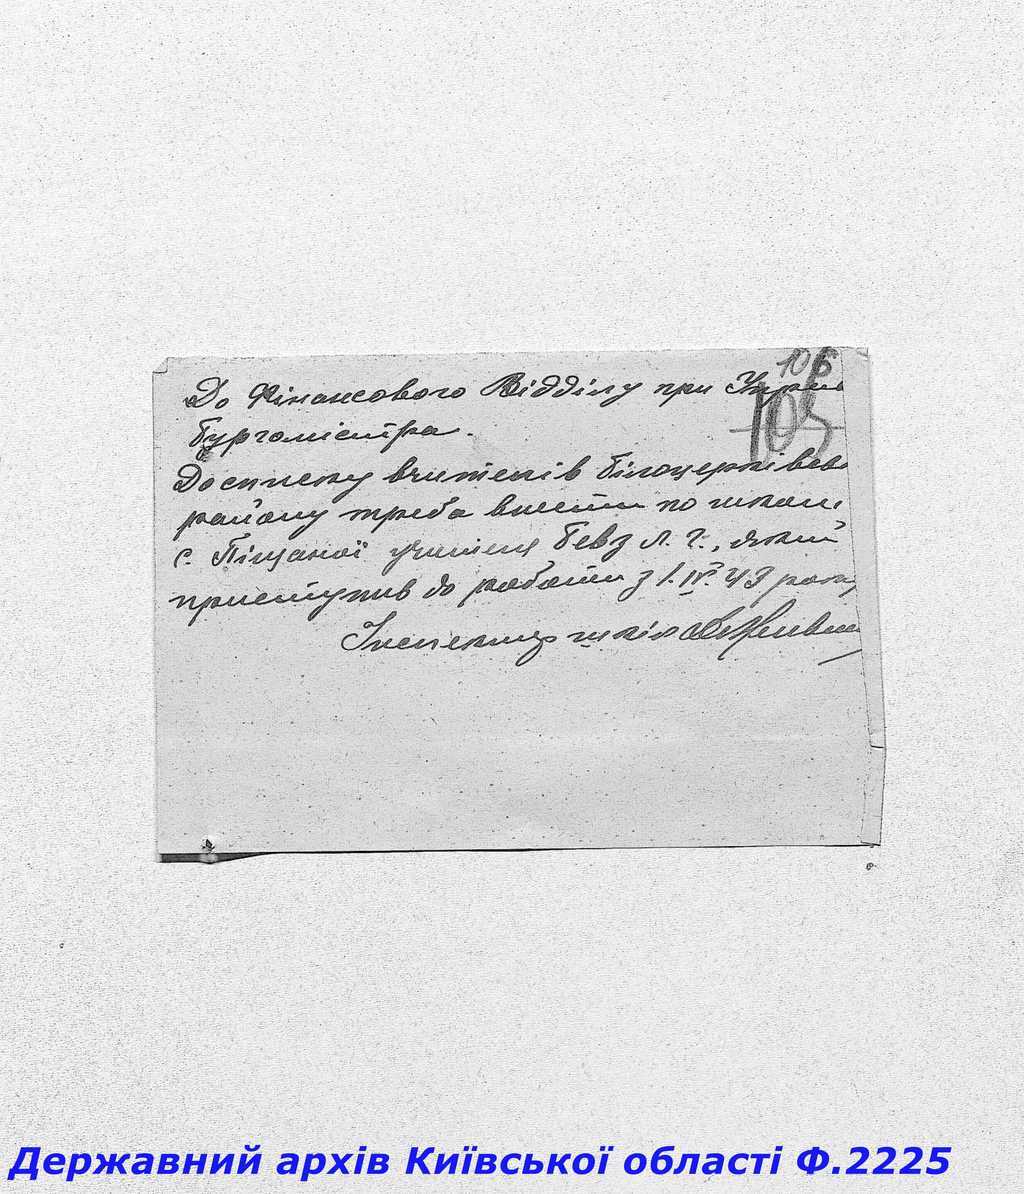 106
105
До Фінансового Відділу при
бургомістра.
До списку вчителів Білоцерківсь
району треба внести по школі
с. Піщаної учителя Бевз Л. Г., який
приступив до роботи з 1. IV. 43 року
Інспектор шкіл
Державний архів Київської області Ф.2225